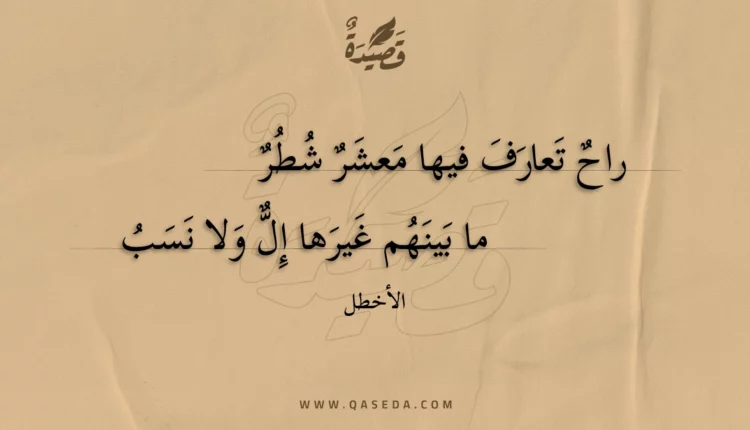 قَصِيدَةٌ
راحٌ تَعارَفَ فيها مَعشَرٌ شُطُرٌ
ما بَينَهُم غَيرَها إِلٌّ وَلا نَسَبُ
الأخطل
WWW.QASEDA.COM